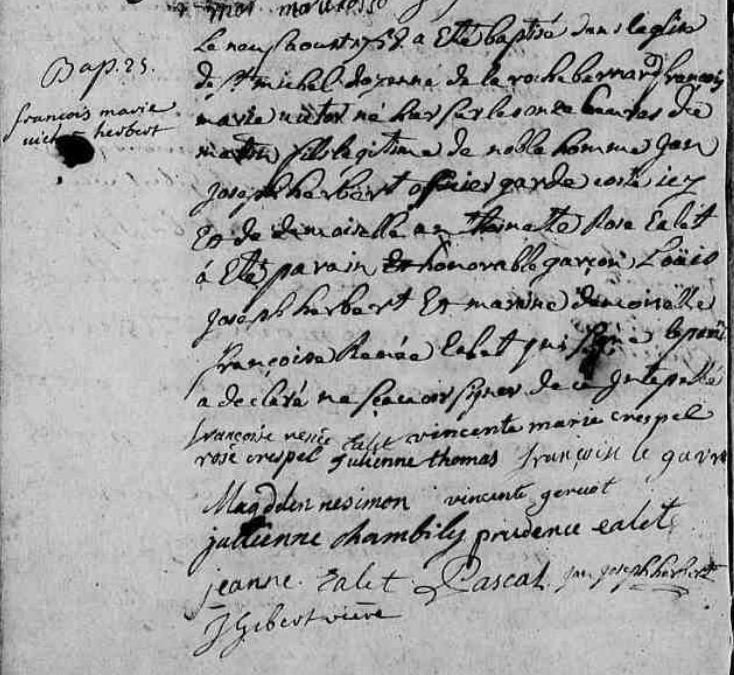 Bap. 25.
françois marie
victor herbert
Le neuf aoust 1758. a Eté baptisé dans leglise
de St michel doyenné de la roche bernard françois
marie victor né hier sur les onze heures de
matin fils legitime de noble homme Jan
Joseph herbert officier garde coste icy
Et de demoiselle antoinette Rose Ealet
a Eté parain honorable garçon Loüis
Joseph herbert Et maraine demoiselle
françoise Renée Ealet qui signe le parain
a declaré ne sçavoir signer de ce Interpellé
françoise renée Ealet vincente marie crespel
rose crespel Julienne thomas françois le gavre
Magdelene simon vincente geruot
jullienne chambily prudence ealet
jeanne Ealet Pascal jan joseph herbert
J Gibert